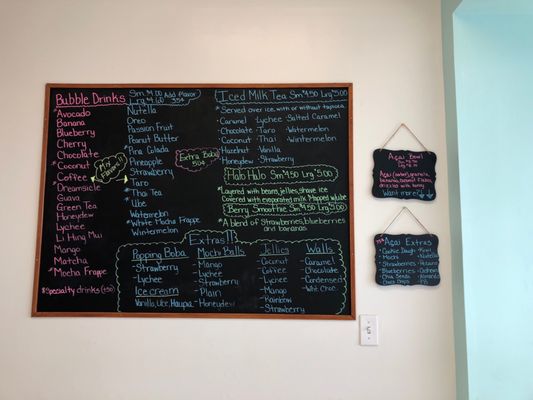 Bubble Drinks Sm 4.00 Add Flavor
Lrg 4.60 35¢
*Avocado
Banana
Blueberry
Cherry
Chocolate
*Coconut
*Coffee
*Dreamsicle
Guava
Green Tea
Honeydew
Lychee
Li Hing Mui
Mango
Matcha
*Mocha Frappe
*Specialty drinks
Nutella
Oreo
Passion Fruit
Peanut Butter
Pina Colada
Pineapple
Strawberry
*Taro
*Thai Tea
*Ube
Watermelon
*White Mocha Frappe
Wintermelon
Mix Flavors!!!
Extra Boba
50¢
Iced Milk Tea Sm 4.50 Lrg 5.00
*Served over ice, with or without tapioca
Caramel
Chocolate
Coconut
Hazelnut
Honeydew
Lychee
Taro
Thai
Vanilla
Strawberry
Salted Caramel
Watermelon
Wintermelon
Halo Halo Sm 4.50 Lrg 5.00
*Layered with beans, jellies, shave ice
Covered with evaporated milk
Berry Smoothie Sm 4.50 Lrg 5.00
*A blend of Strawberries, blueberries
and bananas
Extras!!!
Popping Boba
-Strawberry
-Lychee
Ice cream
Vanilla, Ube, Haupia
Mochi Balls
-Mango
-Lychee
-Strawberry
-Plain
-Honeydew
Jellies
-Coconut
-Coffee
-Lychee
-Mango
-Rainbow
-Strawberry
Walls
-Caramel
-Chocolate
-Condensed
-Wht Choc.
Acai Bowl
banana
honey
Want more?
Acai Extras
Cookie Dough
Mochi
Strawberries
Blueberries
Chia Seeds
Kiwi
Nutella
Mango
Almonds
PB